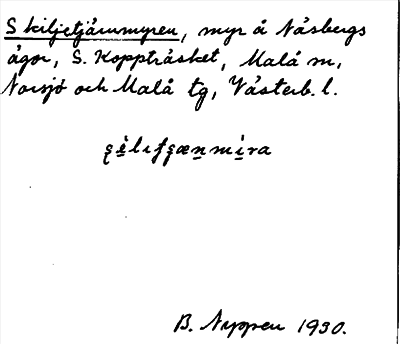 Skiljetjärnmyren, myr å Näsbergs
ägor, S. Koppträsket, Malå sn,
Norsjö och Malå tg, Västerb. l.
ʂɩ̀lɩfʂænmɩ̀ra
B. Nyppen 1930.